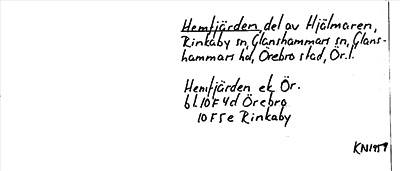 Hemfjärden del av Hjälmaren,
Rinkaby sn, Glanshammars sn, Glans-
hammars hd, Örebro stad, Ör.l.
Hemfjärden ek Ör.
bl 10F 4d Örebro
10F 5e Rinkaby
KN1959